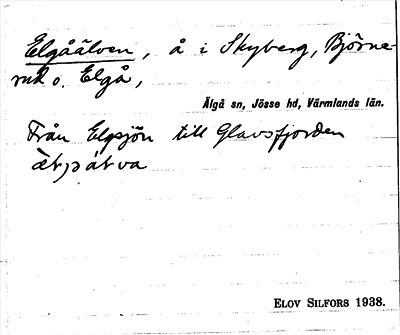 Elgåälven, å i Skyberg, Björne-
rud o. Elgå,
Älgå sn, Jösse hd, Värmlands län.
Från Elgsjön till Glavsfjorden
ELOV SILFORS 1938.